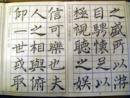 之盛所以遊
目騁懷足以
極視聽之娛
信可樂也夫
人之相與俯
仰一世或取